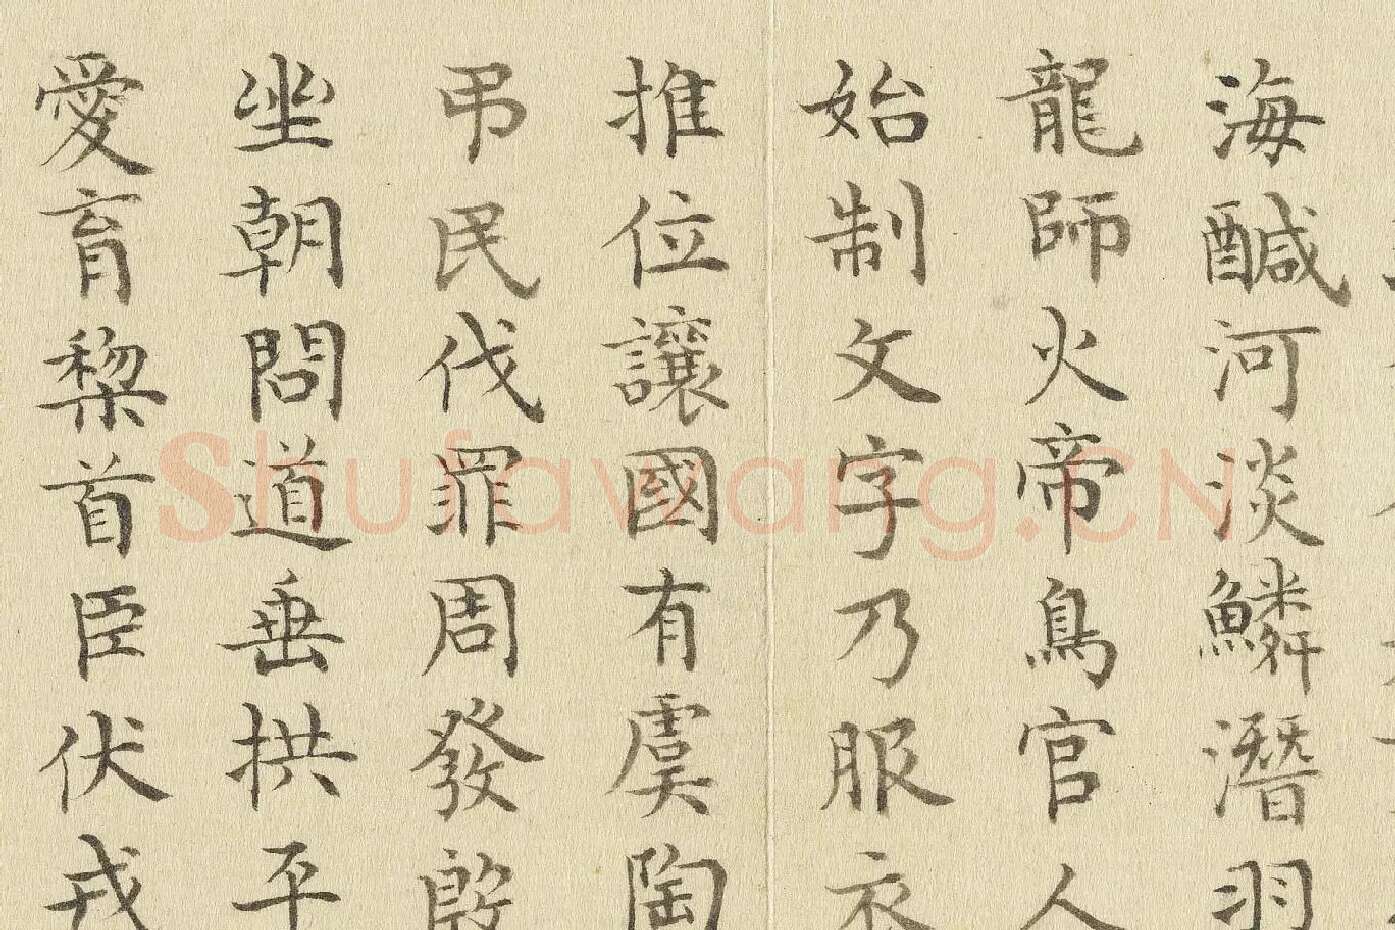 海醎河淡鱗潛羽
龍師火帝鳥官人
始制文字乃服衣
推位讓國有虞陶
弔民伐罪周發殷
坐朝問道垂拱平
愛育黎首臣伏戎
Shufawang.CN